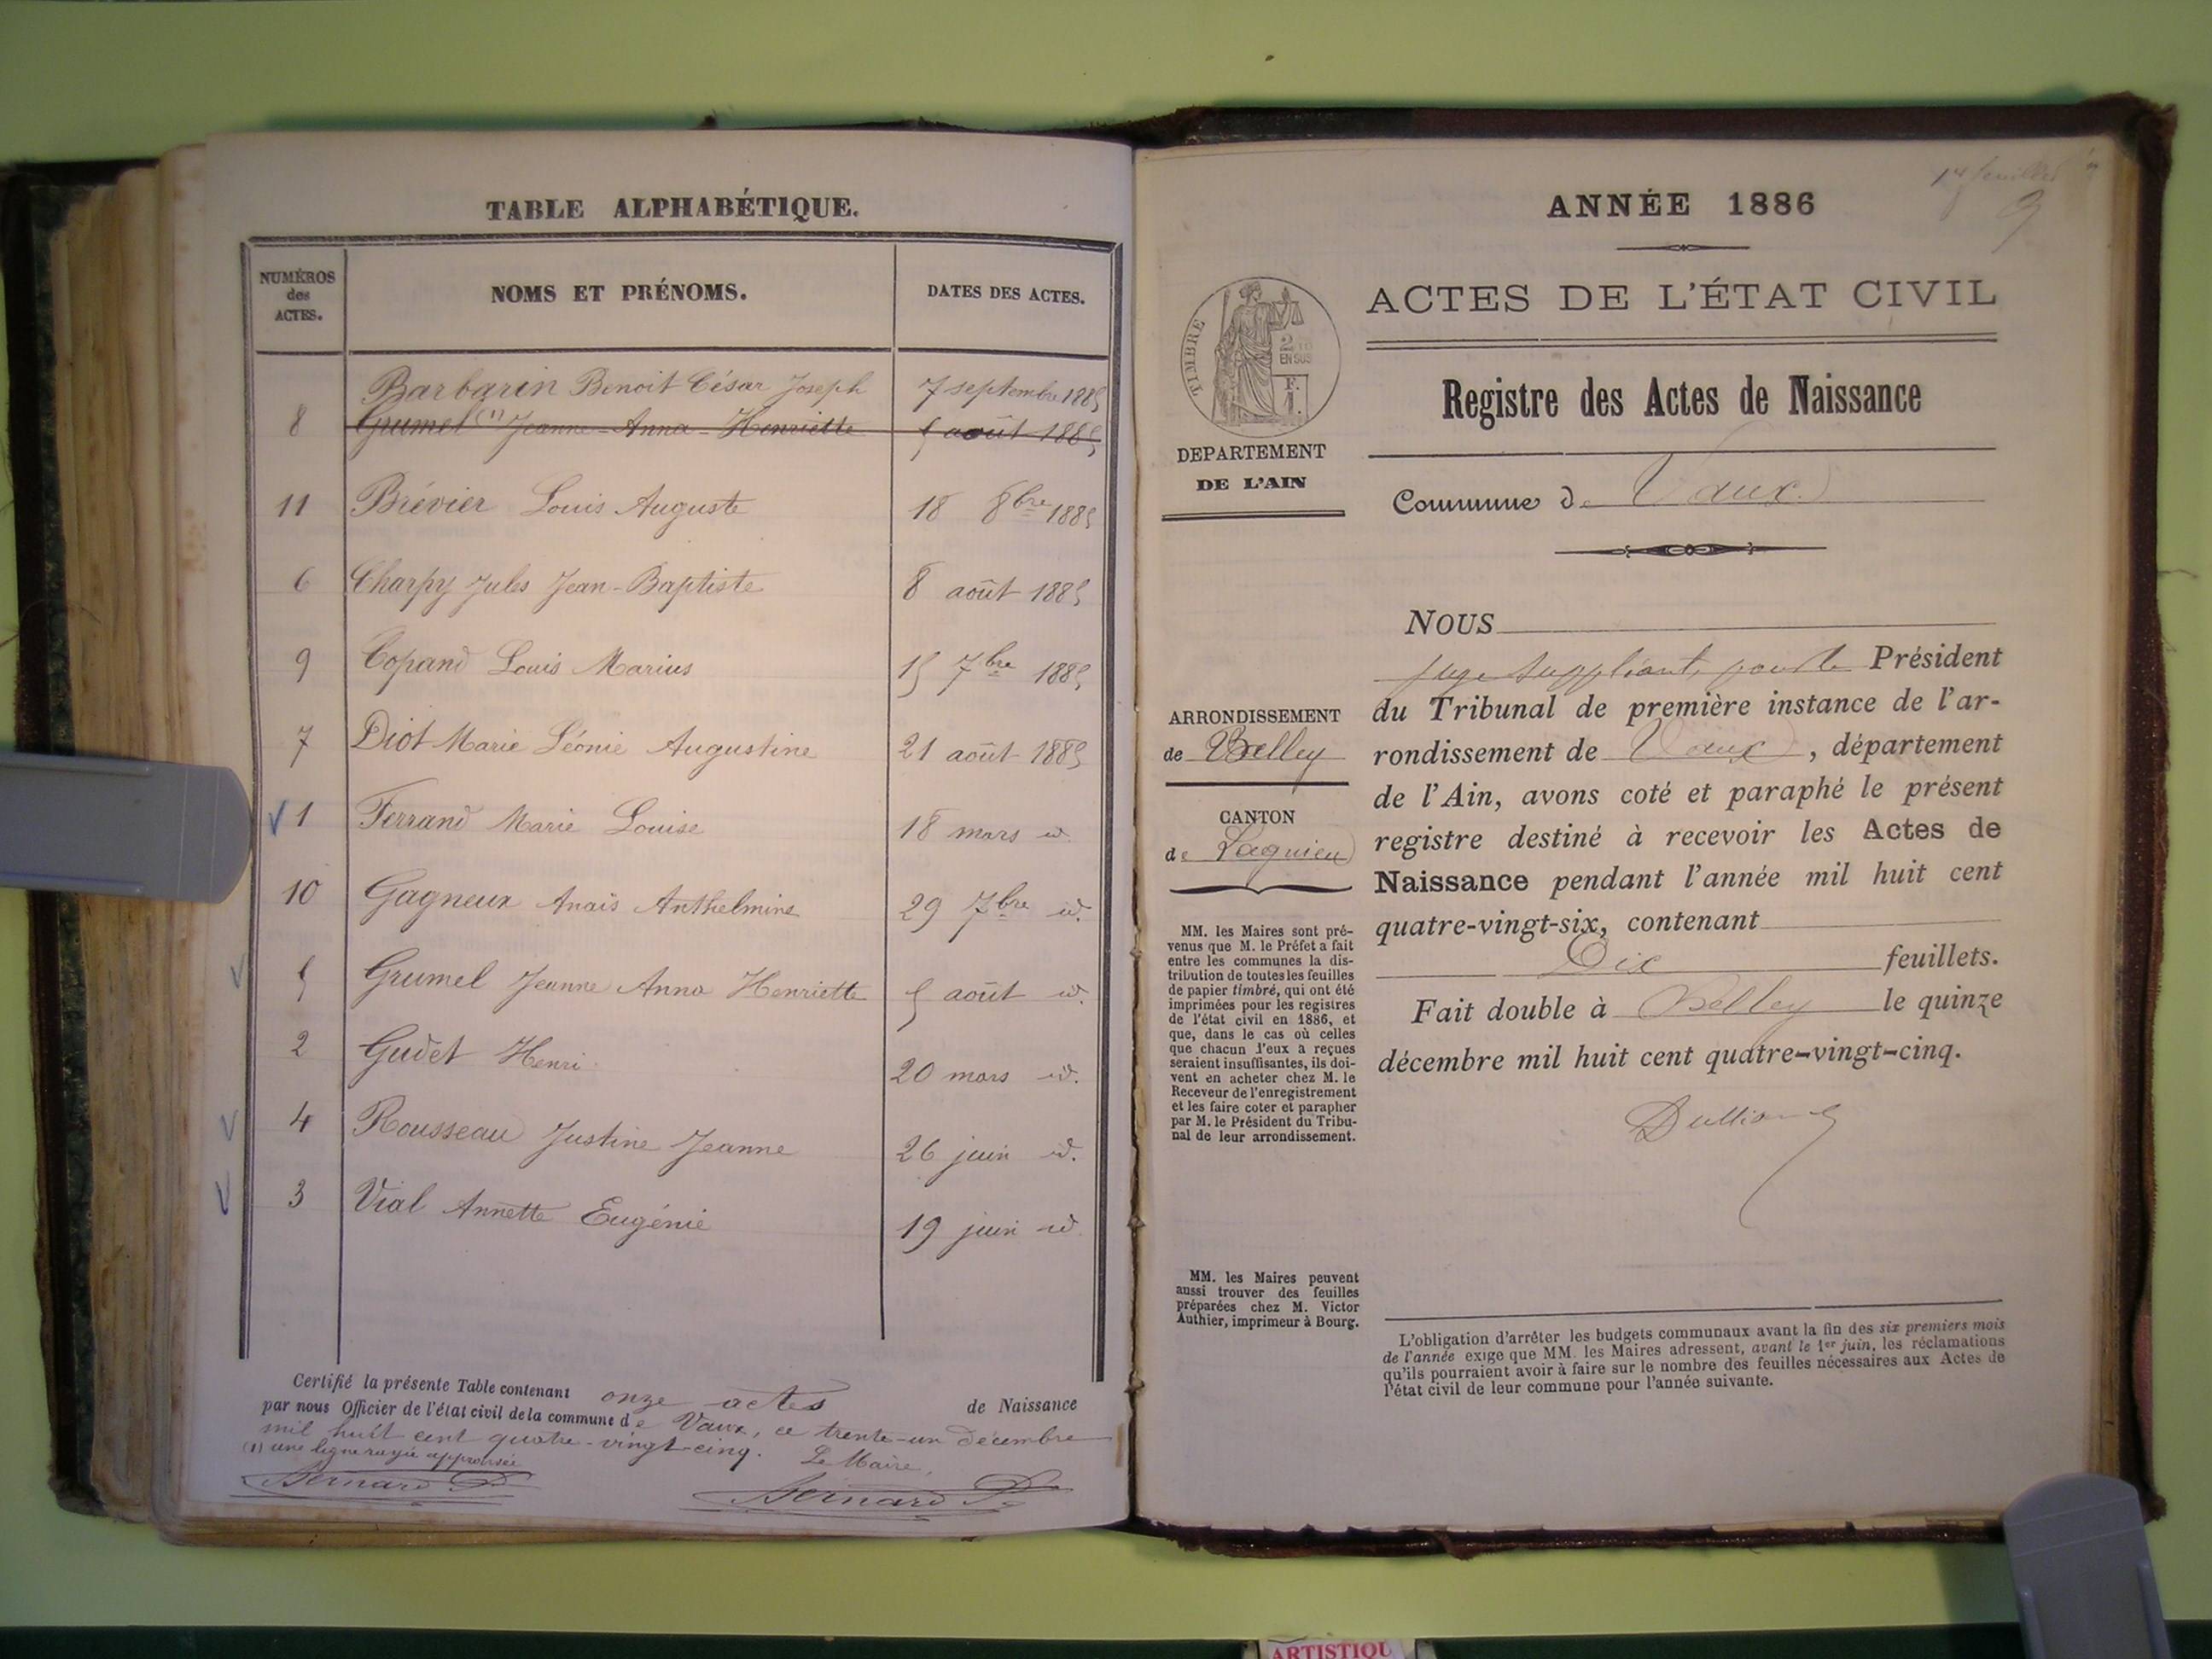 TABLE ALPHABÉTIQUE.
NUMÉROS
des
ACTES.
NOMS ET PRÉNOMS.
DATES DES ACTES.
Barbarin Benoit César Joseph 7 septembre 1885
8 Grumel (1) Jeanne-Anna-Henriette 5 août 1885
11 Brévier Louis Auguste 18 8bre 1885
6 Charpy Jules Jean-Baptiste 8 août 1885
9 Copand Louis Marius 15 7bre 1885
7 Diot Marie Léonie Augustine 21 août 1885
1 Ferrand Marie Louise 18 mars id.
10 Gagneux Anaïs Anthelmine 29 7bre id.
5 Grumel Jeanne Anna Henriette 5 août id.
2 Gudet Henri 20 mars id.
4 Rousseau Justine Jeanne 26 juin id.
3 Vial Annette Eugénie 19 juin id.
Certifié la présente Table contenant onze actes de Naissance
par nous Officier de l'état civil de la commune de Vaux, ce trente-un décembre
mil huit cent quatre-vingt-cinq. Le Maire,
(1) une ligne rayée approuvée
Bernard
Bernard
ANNÉE 1886
ACTES DE L'ÉTAT CIVIL
TIMBRE
2/10
EN SUS
F.
1.
Registre des Actes de Naissance
DEPARTEMENT
DE L'AIN
Commune de Vaux
NOUS
juge suppléant, pour le Président
du Tribunal de première instance de l'ar-
rondissement de Vaux, département
de l'Ain, avons coté et paraphé le présent
registre destiné à recevoir les Actes de
Naissance pendant l'année mil huit cent
quatre-vingt-six, contenant
Dix feuillets.
Fait double à Belley le quinze
décembre mil huit cent quatre-vingt-cinq.
ARRONDISSEMENT
de Belley
CANTON
de Lagnieu
MM. les Maires sont pré-
venus que M. le Préfet a fait
entre les communes la dis-
tribution de toutes les feuilles
de papier timbré, qui ont été
imprimées pour les registres
de l'état civil en 1886, et
que, dans le cas où celles
que chacun d'eux a reçues
seraient insuffisantes, ils doi-
vent en acheter chez M. le
Receveur de l'enregistrement
et les faire coter et parapher
par M. le Président du Tribu-
nal de leur arrondissement.
MM. les Maires peuvent
aussi trouver des feuilles
préparées chez M. Victor
Authier, imprimeur à Bourg.
L'obligation d'arrêter les budgets communaux avant la fin des six premiers mois
de l'année exige que MM. les Maires adressent, avant le 1er juin, les réclamations
qu'ils pourraient avoir à faire sur le nombre des feuilles nécessaires aux Actes de
l'état civil de leur commune pour l'année suivante.
ARTISTIQU